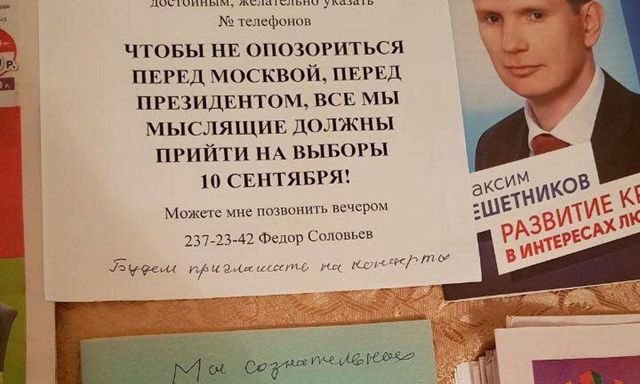 достойным, желательно указать
№ телефонов
ЧТОБЫ НЕ ОПОЗОРИТЬСЯ
ПЕРЕД МОСКВОЙ, ПЕРЕД
ПРЕЗИДЕНТОМ, ВСЕ МЫ
МЫСЛЯЩИЕ ДОЛЖНЫ
ПРИЙТИ НА ВЫБОРЫ
10 СЕНТЯБРЯ!
Можете мне позвонить вечером
237-23-42 Федор Соловьев
Будем приглашать на концерты
аксим
ЕШЕТНИКОВ
РАЗВИТИЕ
В ИНТЕРЕСАХ
Мы сознательные